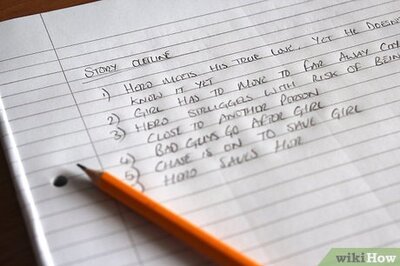 STORY OUTLINE
1) HERO MEETS HIS TRUE LOVE, YET HE DOESN'T
KNOW IT YET
2) GIRL HAS TO MOVE TO FAR AWAY CITY
3) HERO STRUGGLES WITH RISK OF BEING
CLOSE TO ANOTHER PERSON
4) BAD GUYS GO AFTER GIRL
5) CHASE IS ON TO SAVE GIRL
HERO SAVES HER
wikiHow